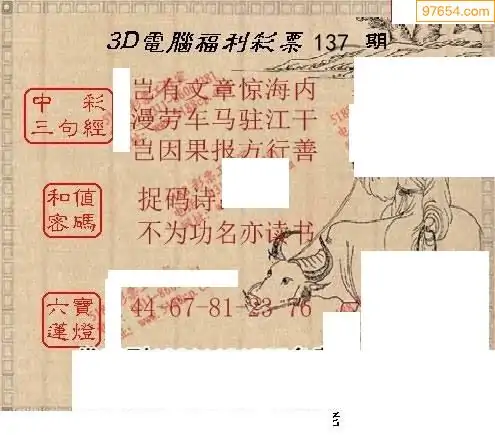 97654.com
3D電腦福利彩票 137 期
中彩
三句經
岂有文章惊海内
漫劳车马驻江干
岂因果报方行善
和值
密碼
捉码诗
不为功名亦读书
六寶
蓮燈
44-67-81-23-76